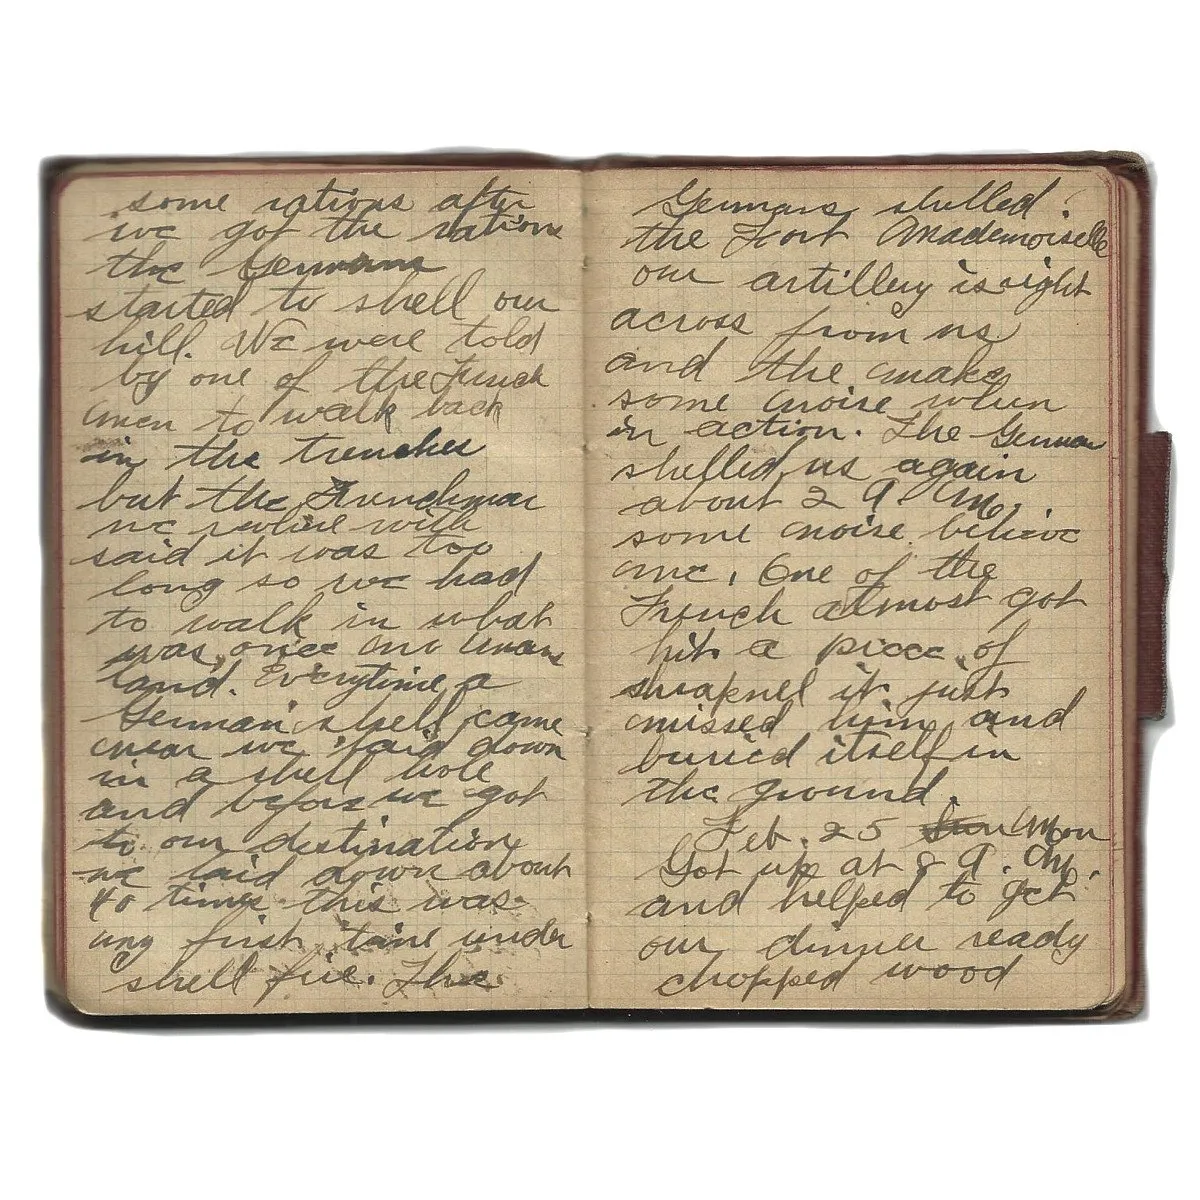 some rations after
we got the rations
the Germans
started to shell our
hill. We were told
by one of the French
men to walk back
in the trenches
but the Frenchman
we were with
said it was too
long so we had
to walk in what
was once no mans
land. Everytime a
German shell came
near we laid down
in a shell hole
and before we got
to our destination
we laid down about
40 times this was
my first time under
shell fire. The
Germans shelled
the Fort Mademoiselle
our artillery is right
across from us
and the make
some noise when
in action. The German
shelled us again
about 2 A.M.
some noise believe
me. One of the
French almost got
hit a piece of
shrapnel it just
missed him and
buried itself in
the ground.
Feb. 25 Mon
Got up at 8 A.M.
and helped to get
our dinner ready
chopped wood